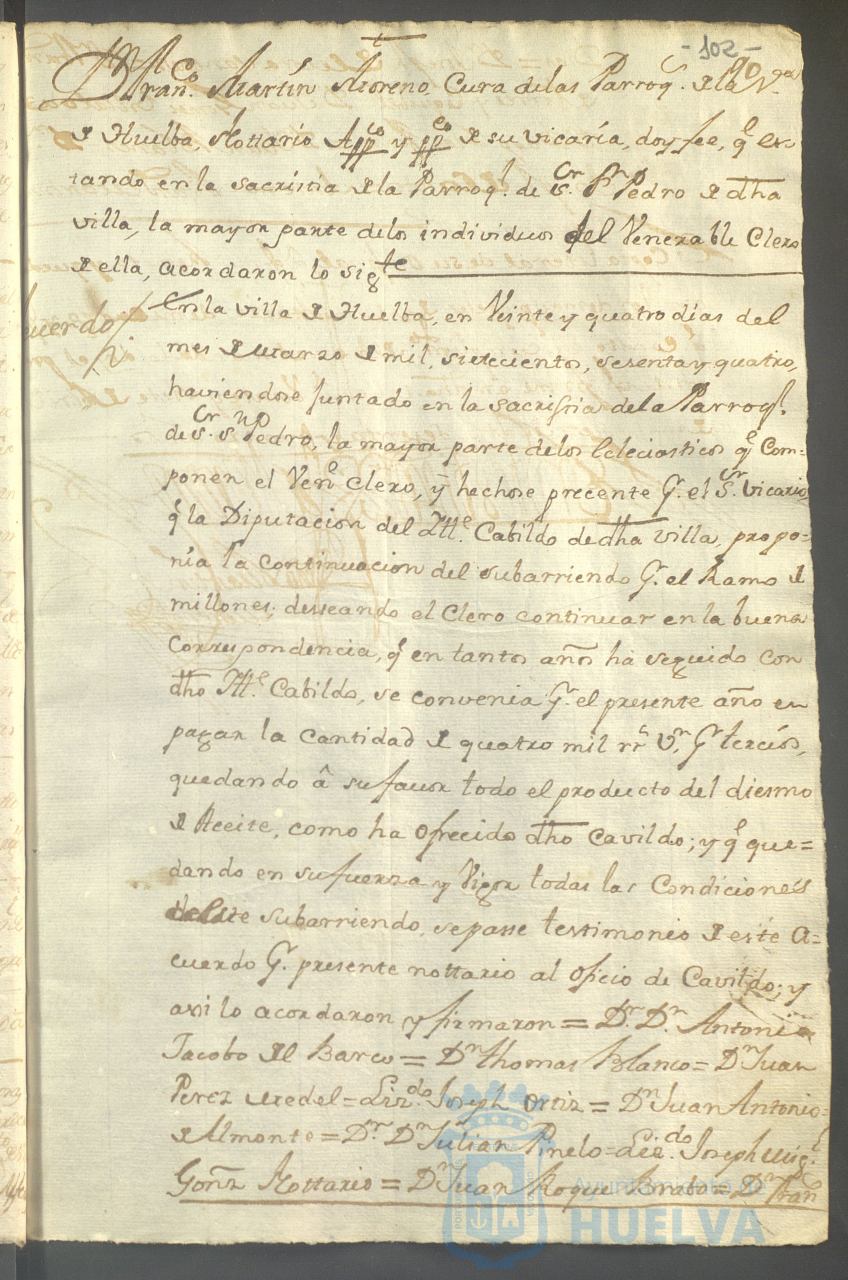 -102-
†
Dn Franco. Martín Moreno, Cura delas Parroqs. de la Va.
de Huelba, Nottario Appco y ppco de su vicaría, doy fee, q̃ es-
tando en la sacristía de la Parroql. de Sr. Sn Pedro de dha
villa, la mayor parte delos individuos del Venerable Clero
de ella, acordaron lo sigte
uerdo/ En la villa de Huelba, en Veinte y quatro días del
mes de marzo de mil, setecientos, sesenta y quatro,
haviendose juntado en la sacristia dela Parroql.
de Sr. Sn Pedro, la mayor parte delos Eclesiasticos q̃ Com=
ponen el Vene Clero, y hechose precente Pr. el Sr. Vicario,
q̃ la Diputacion del Ille. Cabildo de dha villa, propo=
nía la continuacion del subarriendo Pr. el Ramo de
millones; desseando el Clero continuar en la buena
Correspondencia, q̃ en tantos años ha seguido con
dho Ille. Cabildo, se convenia Pr. el presente año en
pagar la cantidad de quatro mil rrs Vn. Pr tercios,
quedando â su favor todo el producto del diesmo
de Aceite, como ha ofrecido dho Cavildo; y q̃ que=
dando en su fuerza y Vigor todas las Condiciones
deste subarriendo, se passe testimonio de este A=
cuerdo Pr. presente nottario al oficio de Cavildo; y
assi lo acordaron y firmaron = Dr. Dn. Antonio
Jacobo del Barco = Dn Thomas Blanco = Dn Juan
Perez = Lizdo. Joseph Ortiz = Dn Juan Antonio=
de Almonte = Dr. Dn Julian Pinelo = Lizdo. Joseph Migl.
Gonz Nottario = Dn Juan Roque = Dn Fran
Ayuntamiento de
HUELVA